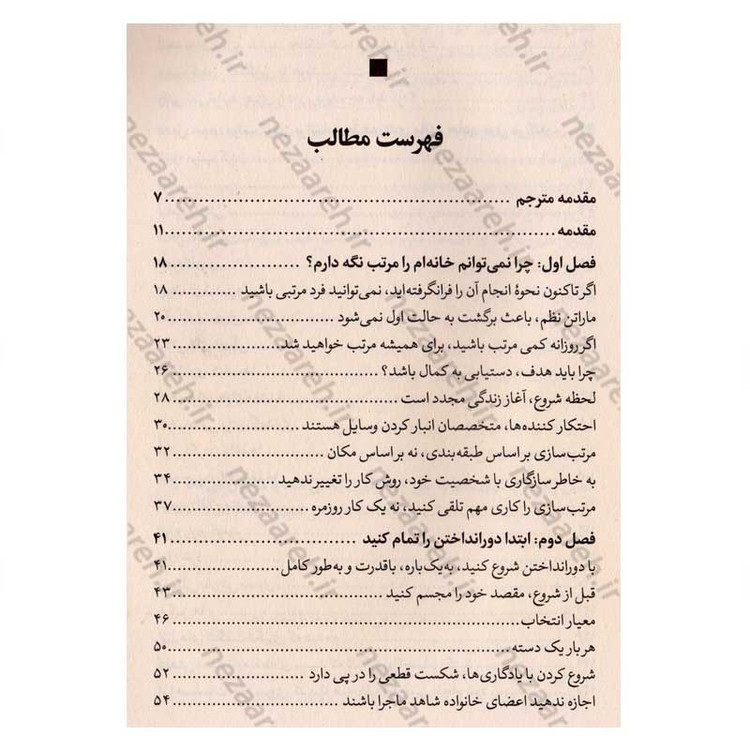 فهرست مطالب
مقدمه مترجم ........ ۷
مقدمه ........ ۱۱
فصل اول: چرا نمی‌توانم خانه‌ام را مرتب نگه دارم؟ ........ ۱۸
اگر تاکنون نحوهٔ انجام آن را فرانگرفته‌اید، نمی‌توانید فرد مرتبی باشید ۱۸
ماراتن نظم، باعث برگشت به حالت اول نمی‌شود ........ ۲۰
اگر روزانه کمی مرتب باشید، برای همیشه مرتب خواهید شد ........ ۲۳
چرا باید هدف، دستیابی به کمال باشد؟ ........ ۲۶
لحظه شروع، آغاز زندگی مجدد است ........ ۲۸
احتکار کننده‌ها، متخصصان انبار کردن وسایل هستند ........ ۳۰
مرتب‌سازی بر اساس طبقه‌بندی، نه بر اساس مکان ........ ۳۲
به خاطر سازگاری با شخصیت خود، روش کار را تغییر ندهید ........ ۳۴
مرتب‌سازی را کاری مهم تلقی کنید، نه یک کار روزمره ........ ۳۷
فصل دوم: ابتدا دورانداختن را تمام کنید ........ ۴۱
با دورانداختن شروع کنید، به‌یک‌باره، باقدرت و به‌طور کامل ........ ۴۱
قبل از شروع، مقصد خود را مجسم کنید ........ ۴۳
معیار انتخاب ........ ۴۶
هر بار یک دسته ........ ۵۰
شروع کردن با یادگاری‌ها، شکست قطعی را در پی دارد ........ ۵۲
اجازه ندهید اعضای خانواده شاهد ماجرا باشند ........ ۵۴
nezaareh.ir